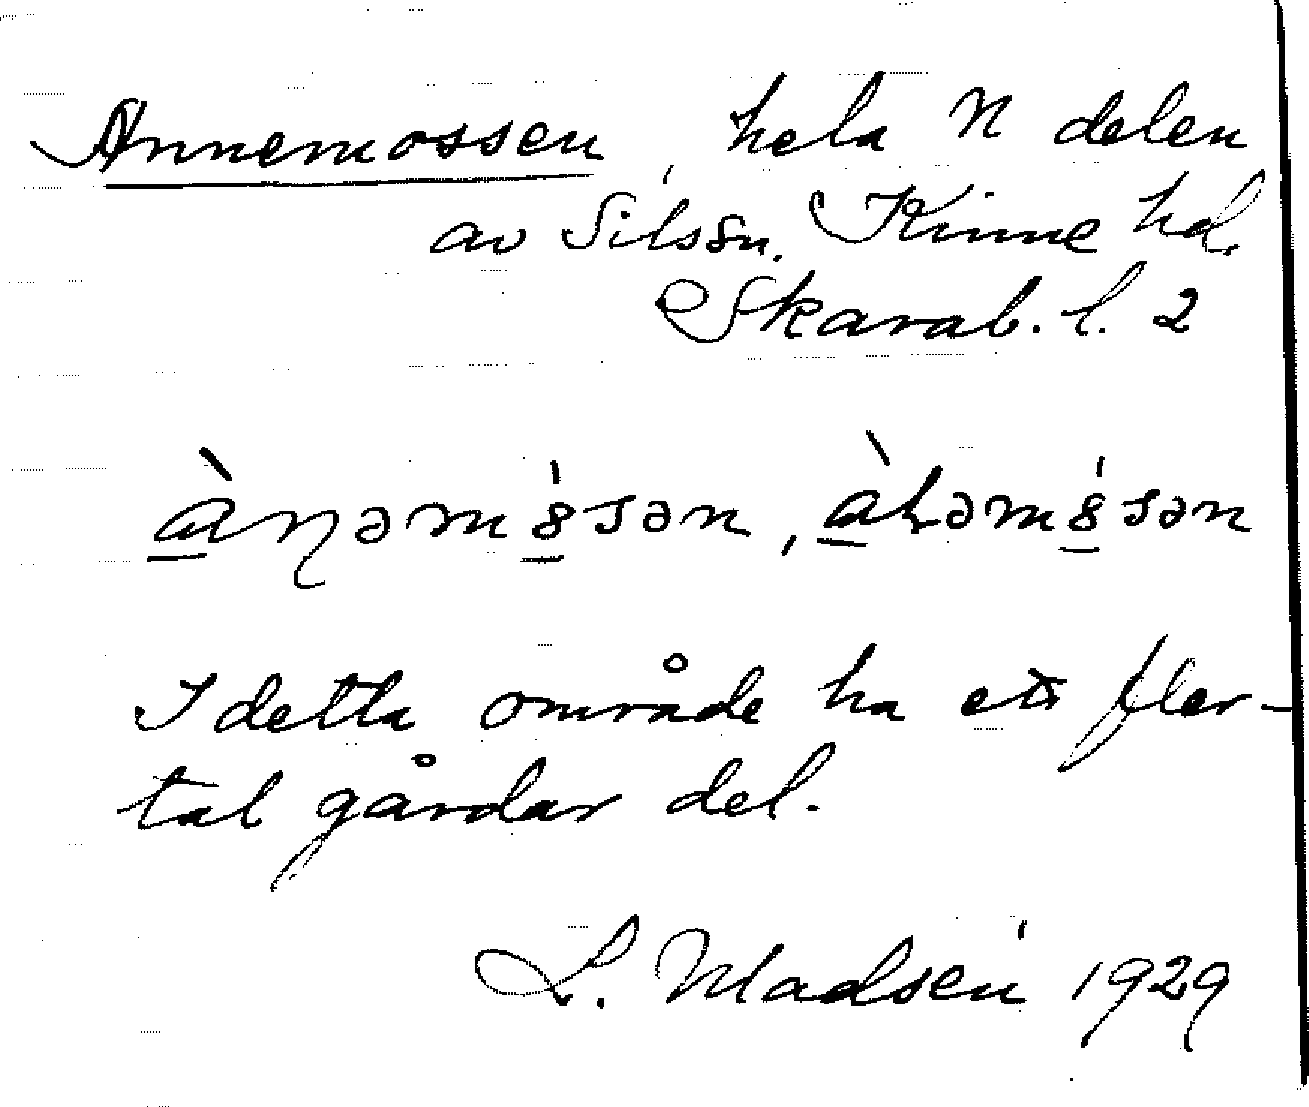 Annemossen, hela N delen
av Silssn. Kinne hd.
Skarab. l. 2
I detta område ha ett fler-
tal gårdar del.
L. Madsén 1929